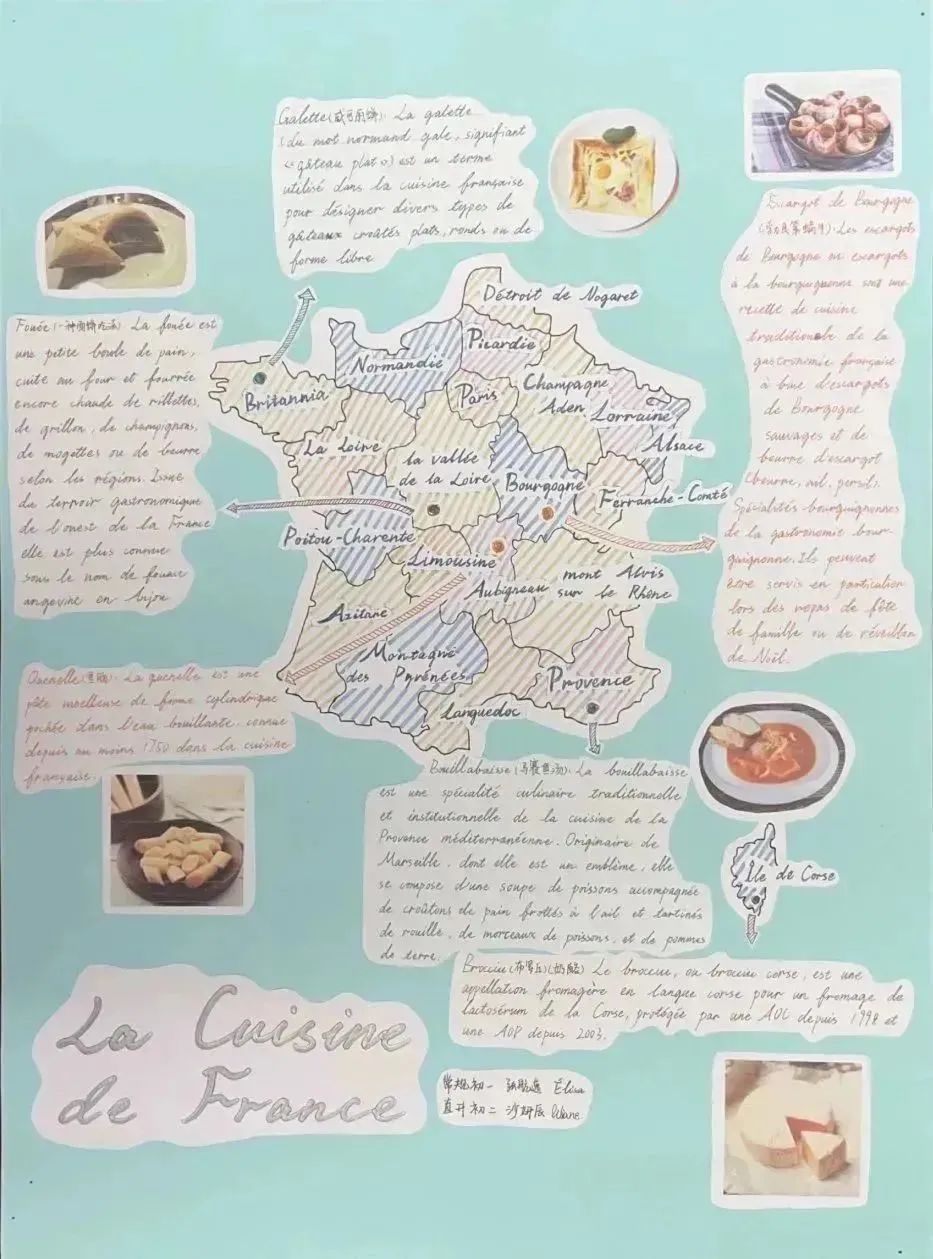 Galette(咸可丽饼): La galette
(du mot normand gale, signifiant
«gâteau plat») est un terme
utilisé dans la cuisine française
pour désigner divers types de
gâteaux croûtés plats, ronds ou de
forme libre
Escargot de Bourgogne
Les escargots
de Bourgogne ou escargots
à la bourguignonne sont une
recette de cuisine
traditionnelle de la
gastronomie française
à base d'escargots
de Bourgogne
sauvages et de
beurre d'escargot
(beurre, ail, persil).
Spécialités bourguignonnes
de la gastronomie bour-
guignonne. Ils peuvent
être servis en particulier
lors des repas de fête
de famille ou de réveillon
de Noël.
Fouée La fouée est
une petite boule de pain,
cuite au four et fourrée
encore chaude de rillettes,
de grillon, de champignons,
de mogettes ou de beurre
selon les régions. Issue
du terroir gastronomique
de l'ouest de la France
elle est plus connue
sous le nom de fouace
angevine en Anjou
Détroit de Nogaret
Picardie
Normandie
Britannia
Paris
Champagne
Aden
Lorraine
Alsace
La Loire
la vallée
de la Loire
Bourgogne
Ferranche-Comté
Poitou-Charente
Limousine
Aubigneau
mont Alvis
sur le Rhône
Azitane
Montagne
des Pyrénées
Provence
Languedoc
Quenelle La quenelle est une
pâte moelleuse de forme cylindrique
pochée dans l'eau bouillante, connue
depuis au moins 1750 dans la cuisine
française.
Bouillabaisse(马赛鱼汤): La bouillabaisse
est une spécialité culinaire traditionnelle
et institutionnelle de la cuisine de la
Provence méditerranéenne. Originaire de
Marseille, dont elle est un emblème, elle
se compose d'une soupe de poissons accompagnée
de croûtons de pain frottés à l'ail et tartinés
de rouille, de morceaux de poissons, et de pommes
de terre.
Île de Corse
Brocciu (奶酪) Le brocciu, ou brocciu corse, est une
appellation fromagère en langue corse pour un fromage de
lactosérum de la Corse, protégée par une AOC depuis 1998 et
une AOP depuis 2003.
La Cuisine
de France
常规初一 Élisa
直升初二 沙妍辰